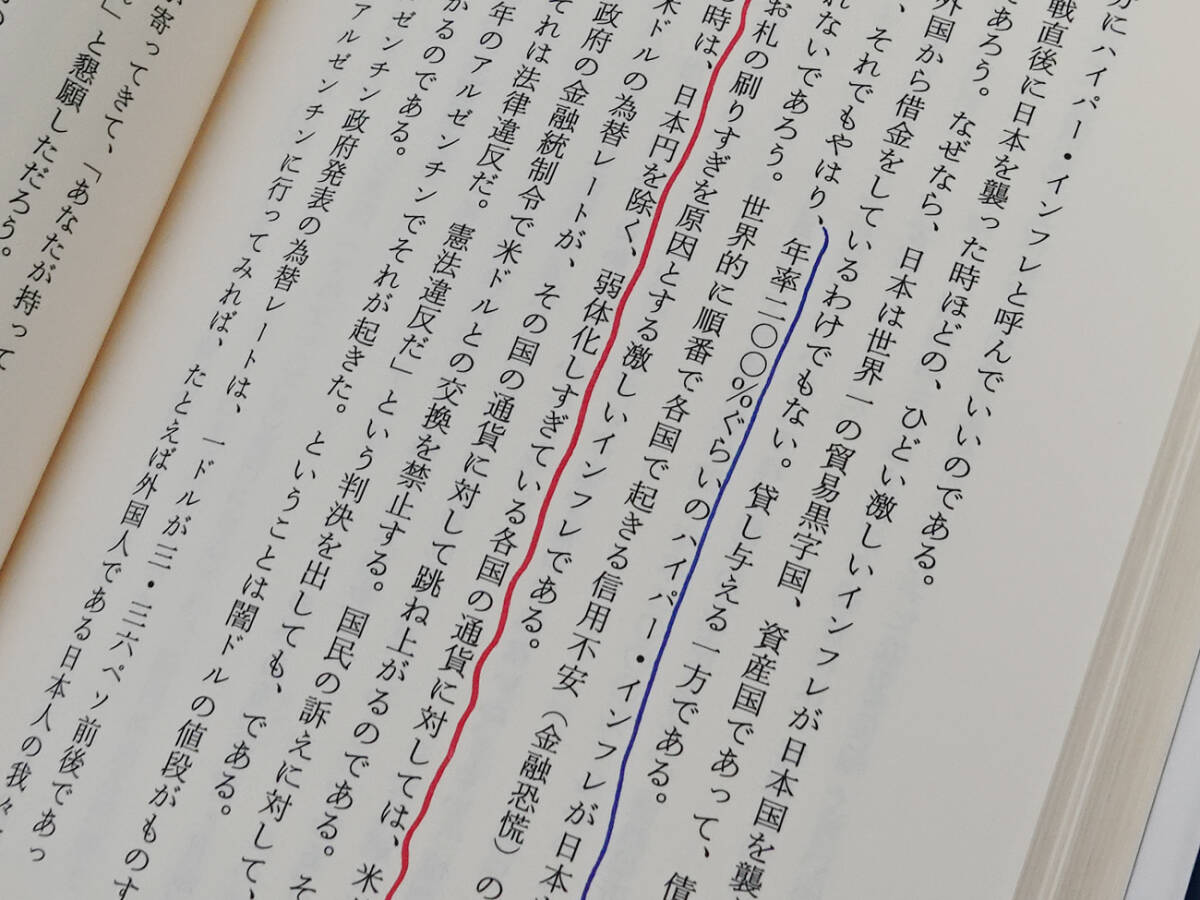 にハイパー・インフレと呼んでいいのである。
戦直後に日本を襲った時ほどの、ひどい激しいインフレが日本国を襲
であろう。なぜなら、日本は世界一の貿易黒字国、資産国であって、債
外国から借金をしているわけでもない。貸し与える一方である。
、それでもやはり、年率二〇〇%ぐらいのハイパー・インフレが日本
れないであろう。世界的に順番で各国で起きる信用不安（金融恐慌）の
お札の刷りすぎを原因とする激しいインフレである。
時は、日本円を除く、弱体化しすぎている各国の通貨に対しては、米
米ドルの為替レートが、その国の通貨に対して跳ね上がるのである。そ
政府の金融統制令で米ドルとの交換を禁止する。国民の訴えに対して、
それは法律違反だ。憲法違反だ」という判決を出しても、である。
年のアルゼンチンでそれが起きた。ということは闇ドルの値段がものす
かるのである。
アルゼンチン政府発表の為替レートは、一ドルが三・三六ペソ前後であっ
ルゼンチンに行ってみれば、たとえば外国人である日本人の我々
寄ってきて、「あなたが持って
」と懇願しただろう。